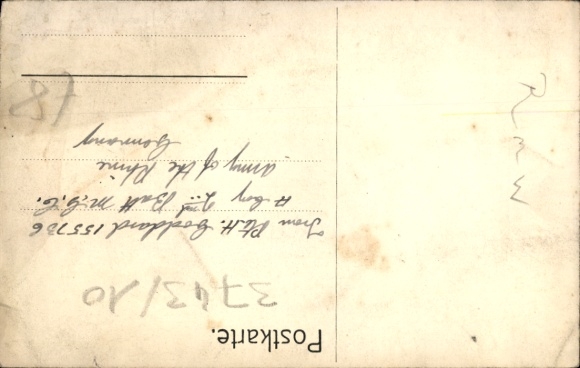 Postkarte.
3743/10
From Pte. H. Goddard 155736
H Coy 2nd Batt M.G.C.
Army of the Rhine
Germany